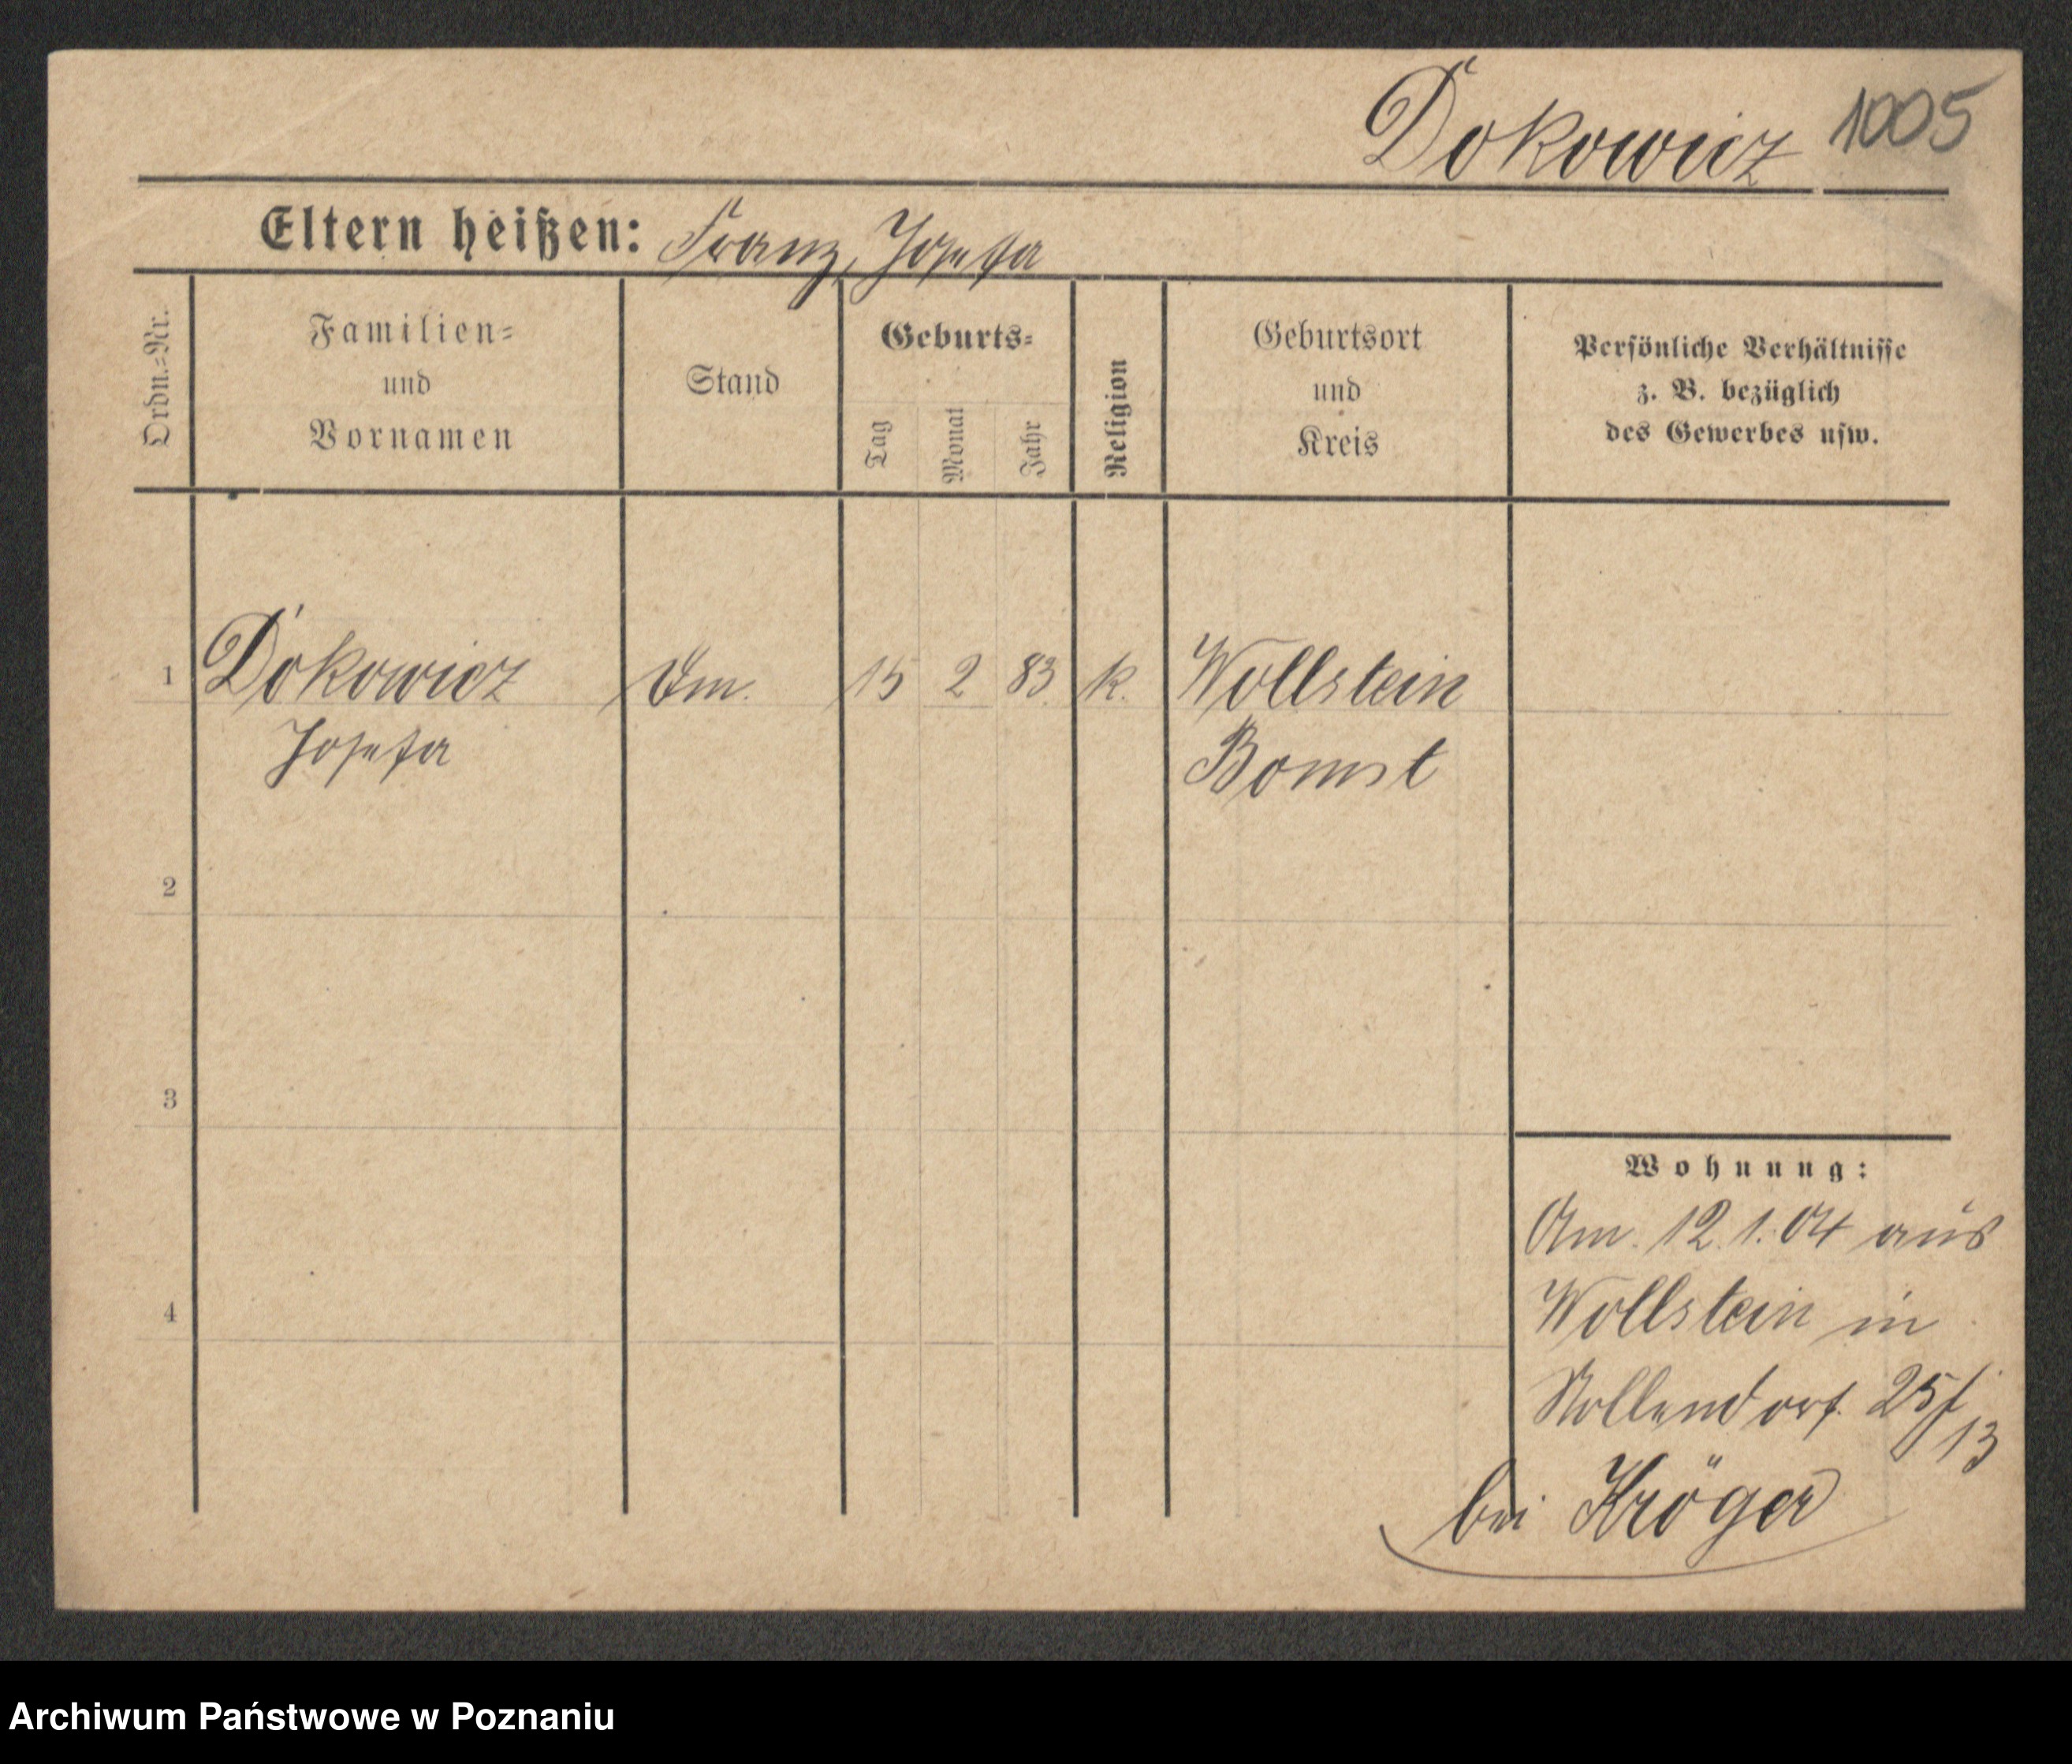 Dokowicz 1005
Eltern heißen: Franz, Josefa
Ordn.-Nr.
Familien-
und
Vornamen
Stand
Geburts-
Tag
Monat
Jahr
Religion
Geburtsort
und
Kreis
Persönliche Verhältnisse
z. B. bezüglich
des Gewerbes usw.
1 Dokowicz 15 2 83 k. Wollstein
Josefa Bomst
2
3
4
Wohnung:
Am 12.1.04 aus
Wollstein in
Nollendorf. 25/13
bei Kröger
Archiwum Państwowe w Poznaniu